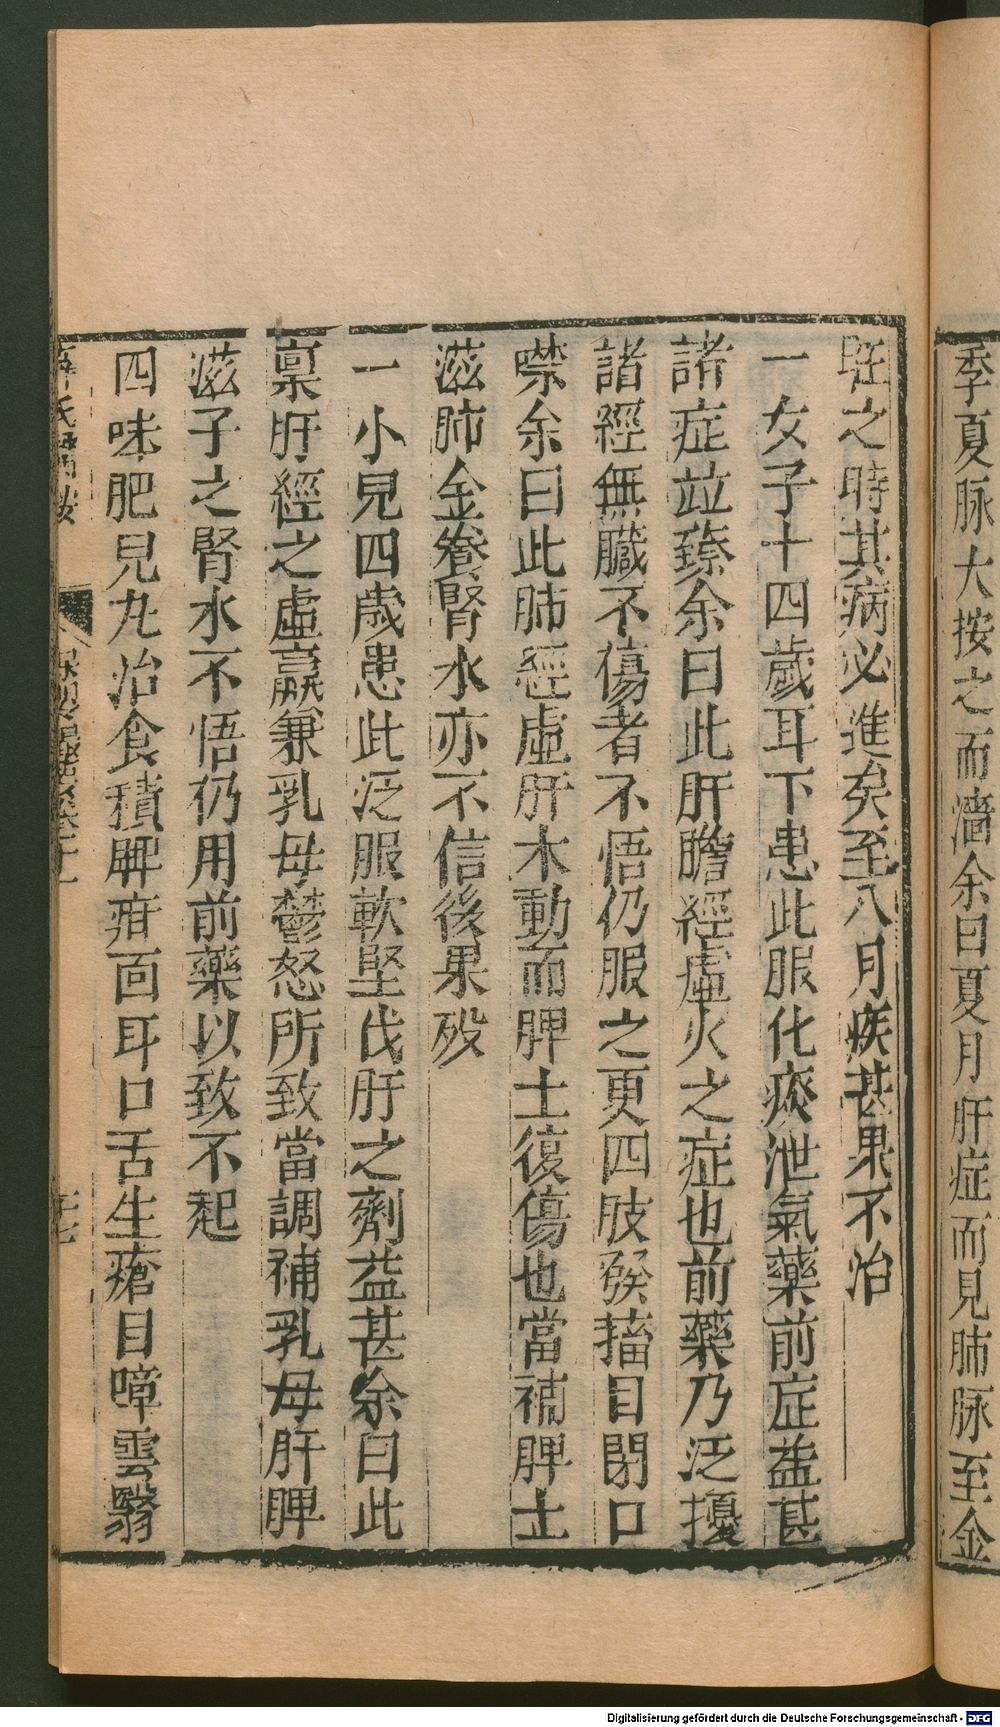 季夏脉大按之而濇余曰夏月肝症而見肺脉至金
旺之時其病必進矣至八月疾甚果不治
一女子十四歲耳下患此服化痰泄氣藥前症益甚
諸症竝臻余曰此肝膽經虛火之症也前藥乃泛擾
諸經無臟不傷者不悟仍服之更四肢發搐目閉口
噤余曰此肺經虛肝木動而脾土復傷也當補脾土
滋肺金養腎水亦不信後果歿
一小兒四歲患此泛服軟堅伐肝之劑益甚余曰此
禀肝經之虛羸兼乳母鬱怒所致當調補乳母肝脾
滋子之腎水不悟仍用前藥以致不起
四味肥兒丸治食積脾疳面耳口舌生瘡目障雲翳
Digitalisierung gefördert durch die Deutsche Forschungsgemeinschaft - DFG